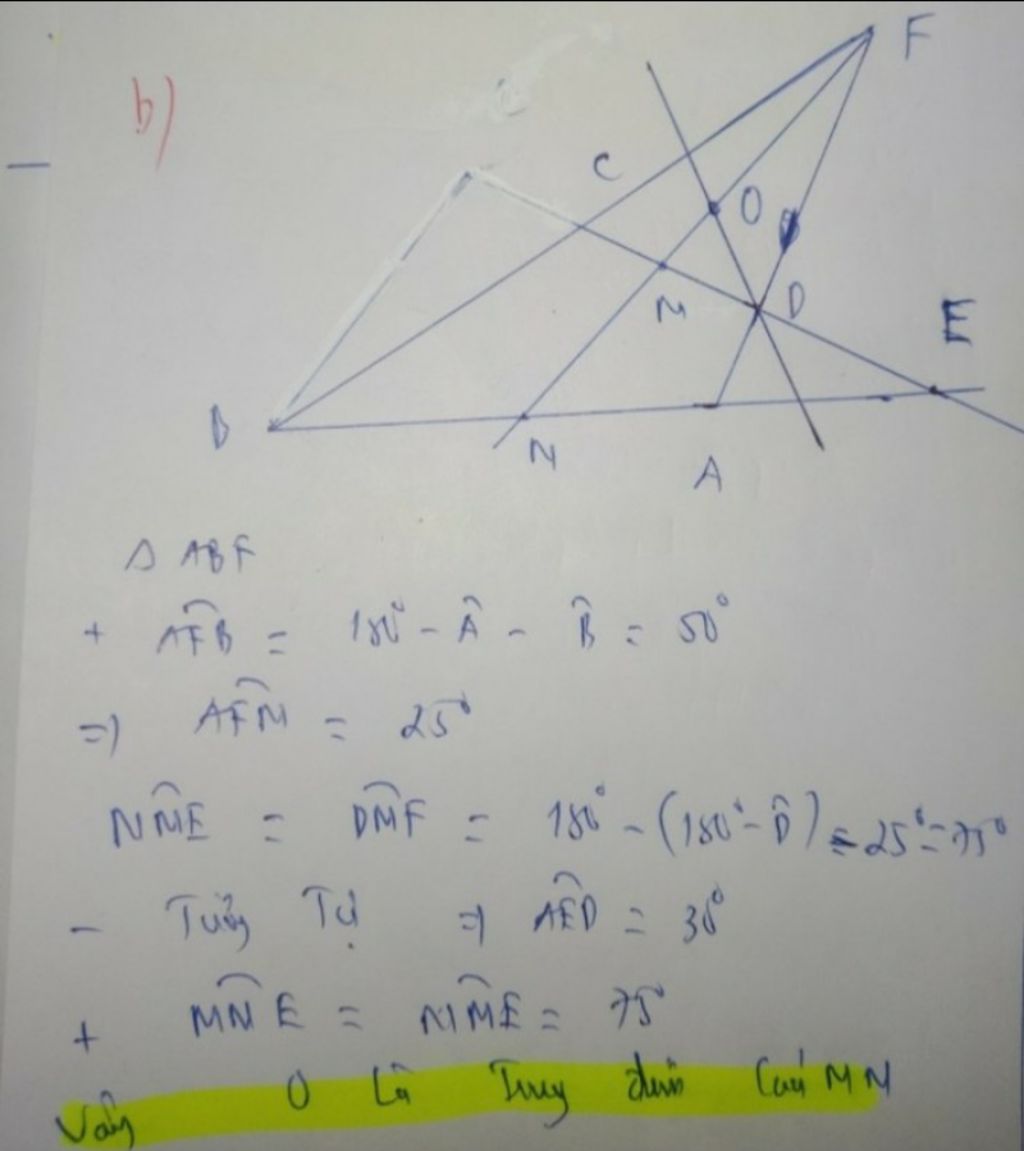 b)
F
C
O
M
D
E
B
N
A
Δ ABF
+ AFB = 180° - Â - B̂ = 50°
=> AFM = 25°
NME = DMF = 180° - (180° - D̂) - 25° = 75°
- Tương Tự => AED = 30°
+ MNE = NME = 75°
Vậy O Là Trung điểm Của MN